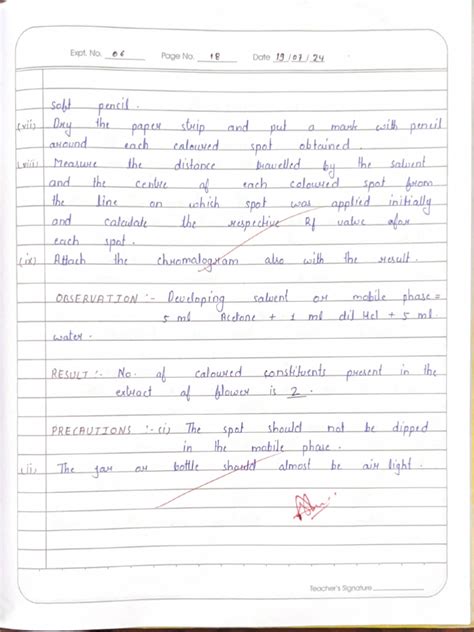 Expt. No. 06 Page No. 18 Date 19/07/24
soft pencil.
(vii) Dry the paper strip and put a mark with pencil
around each coloured spot obtained.
(viii) Measure the distance travelled by the solvent
and the centre of each coloured spot from
the line on which spot was applied initially
and calculate the respective Rf value
each spot.
(ix) Attach the chromatogram also with the result.
OBSERVATION :- Developing solvent or mobile phase =
5 ml Acetone + 1 ml dil Hcl + 5 ml
water.
RESULT :- No. of coloured constituents present in the
extract of flower is 2.
PRECAUTIONS :- (i) The spot should not be dipped
in the mobile phase.
(ii) The jar or bottle should almost be air tight.
Teacher's Signature